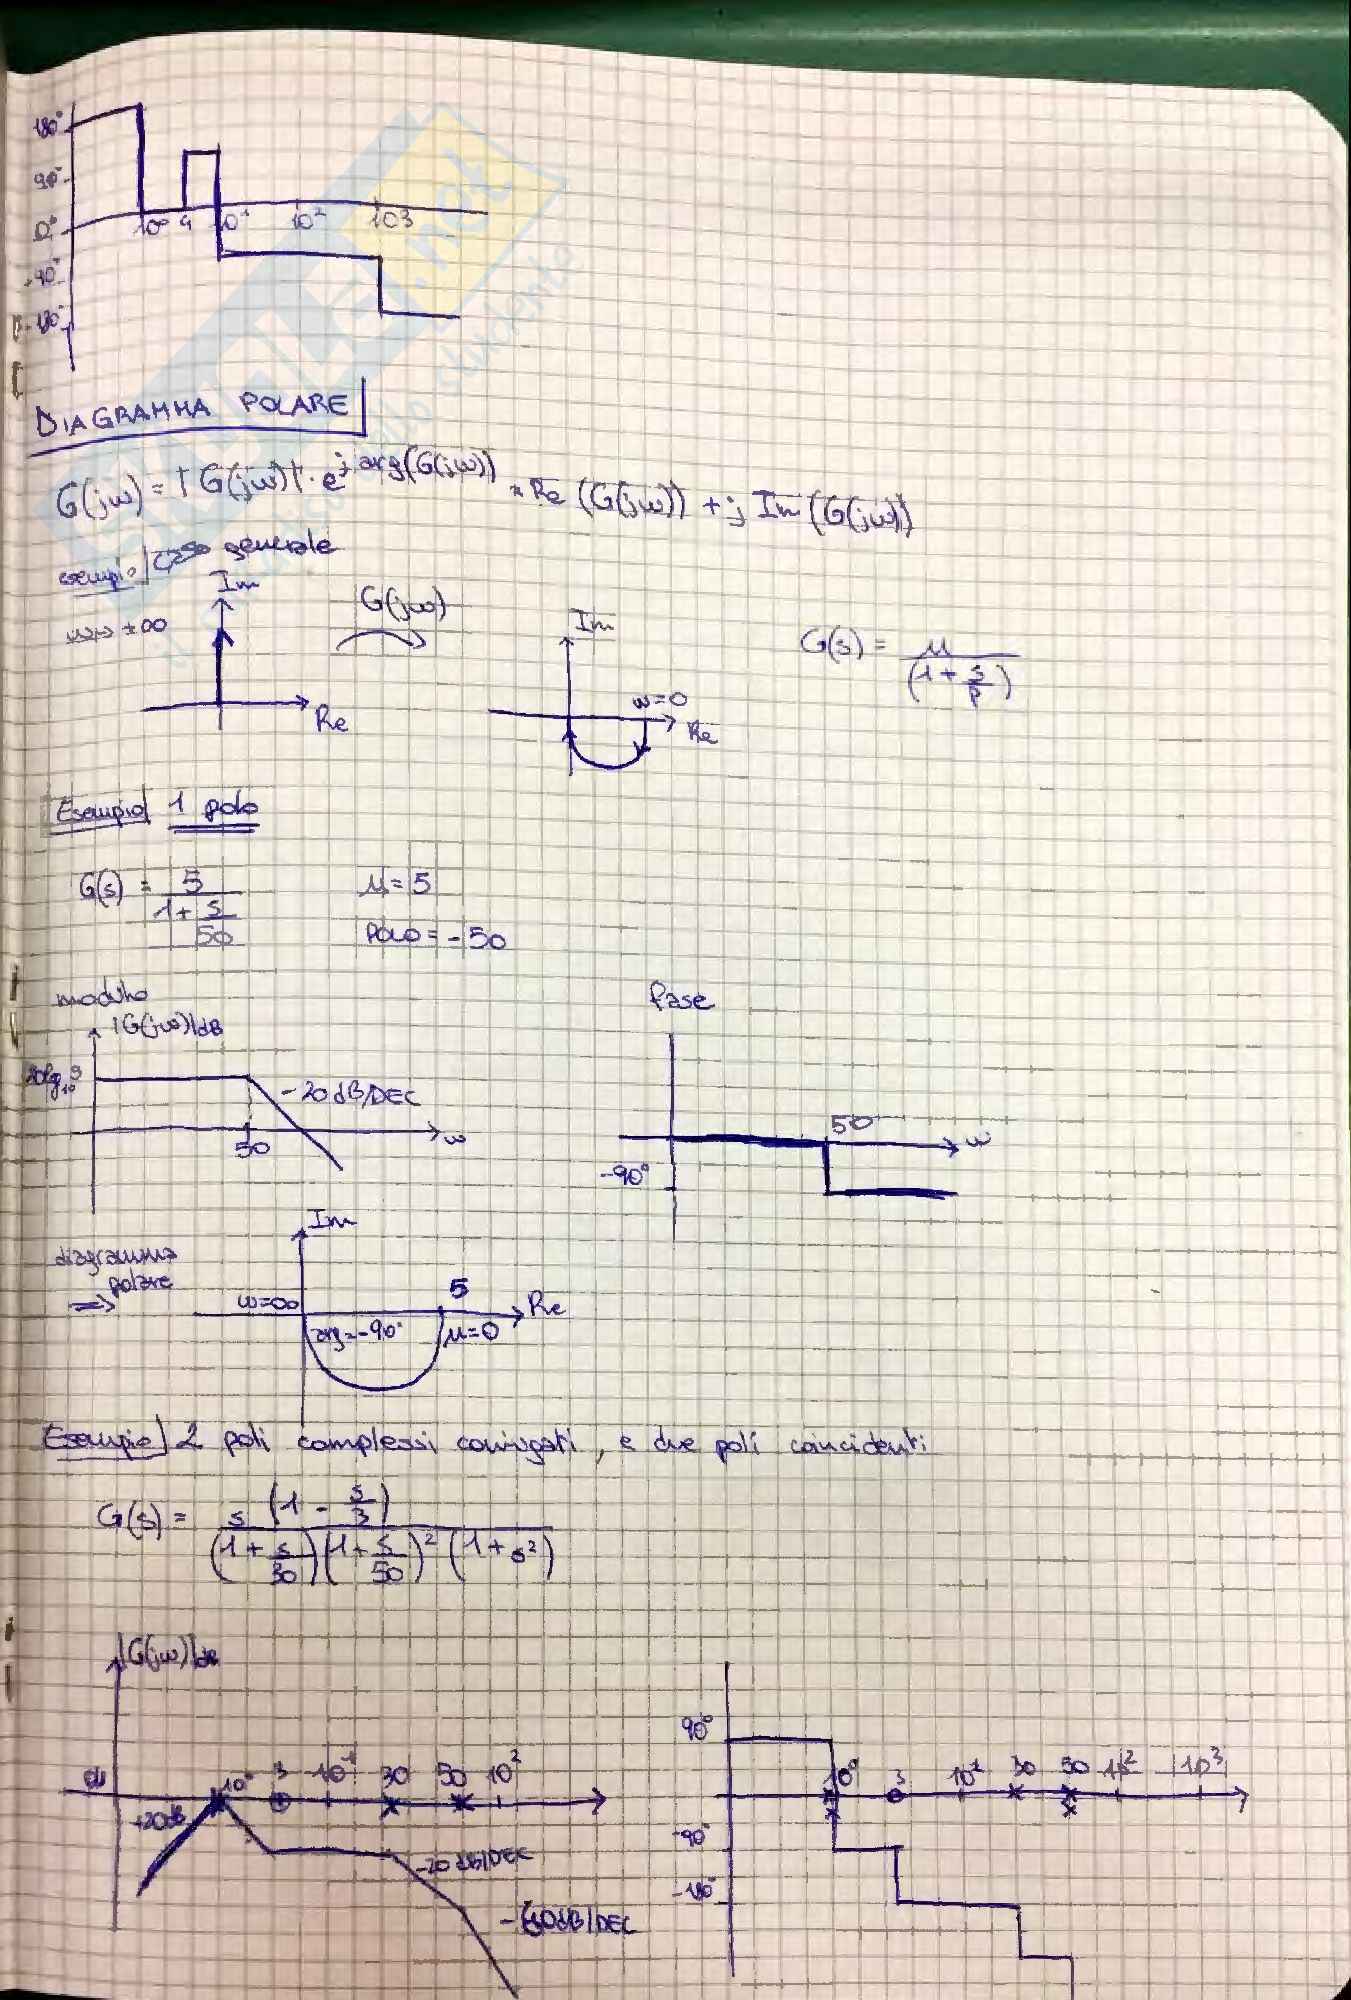 180°
90°
0°
10⁰ 4 10¹ 10² 103
-90°
-180°
DIAGRAMMA POLARE
G(jω) = |G(jω)| · e^j arg(G(jω)) = Re (G(jω)) + j Im (G(jω))
esempio caso generale
Im
G(jω)
Re
Im
ω=0
Re
G(s) = μ / (1 + s/p)
Esempio 1 polo
G(s) = 5 / (1 + s/50)
μ = 5
Polo = -50
modulo
|G(jω)|dB
-20 dB/DEC
50
ω
fase
50
ω
-90°
diagramma
polare
⇒
Im
5
ω=∞
Re
arg=-90°
μ=0
Esempio 2 poli complessi coniugati, e due poli coincidenti
G(s) = s (1 - s/3) / (1 + s/30)(1 + s/50)² (1 + s²)
|G(jω)|dB
10⁰ 3 10¹ 30 50 10²
+20dB
-20 dB/DEC
-60dB/DEC
90°
10⁰ 3 10¹ 30 50 10² 10³
-90°
-180°